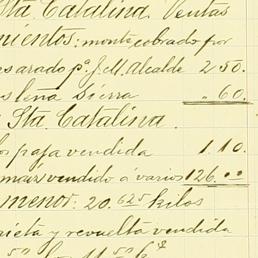 Sta. Catalina. Ventas
mientos: monto cobrado por
arado pª. J. M. Alcalde 2 50.
leña Sierra " 60.
Sta. Catalina.
paja vendida 1 10.
maiz vendido á varios 126.00
menor: 20.625 kilos
y revuelta vendida